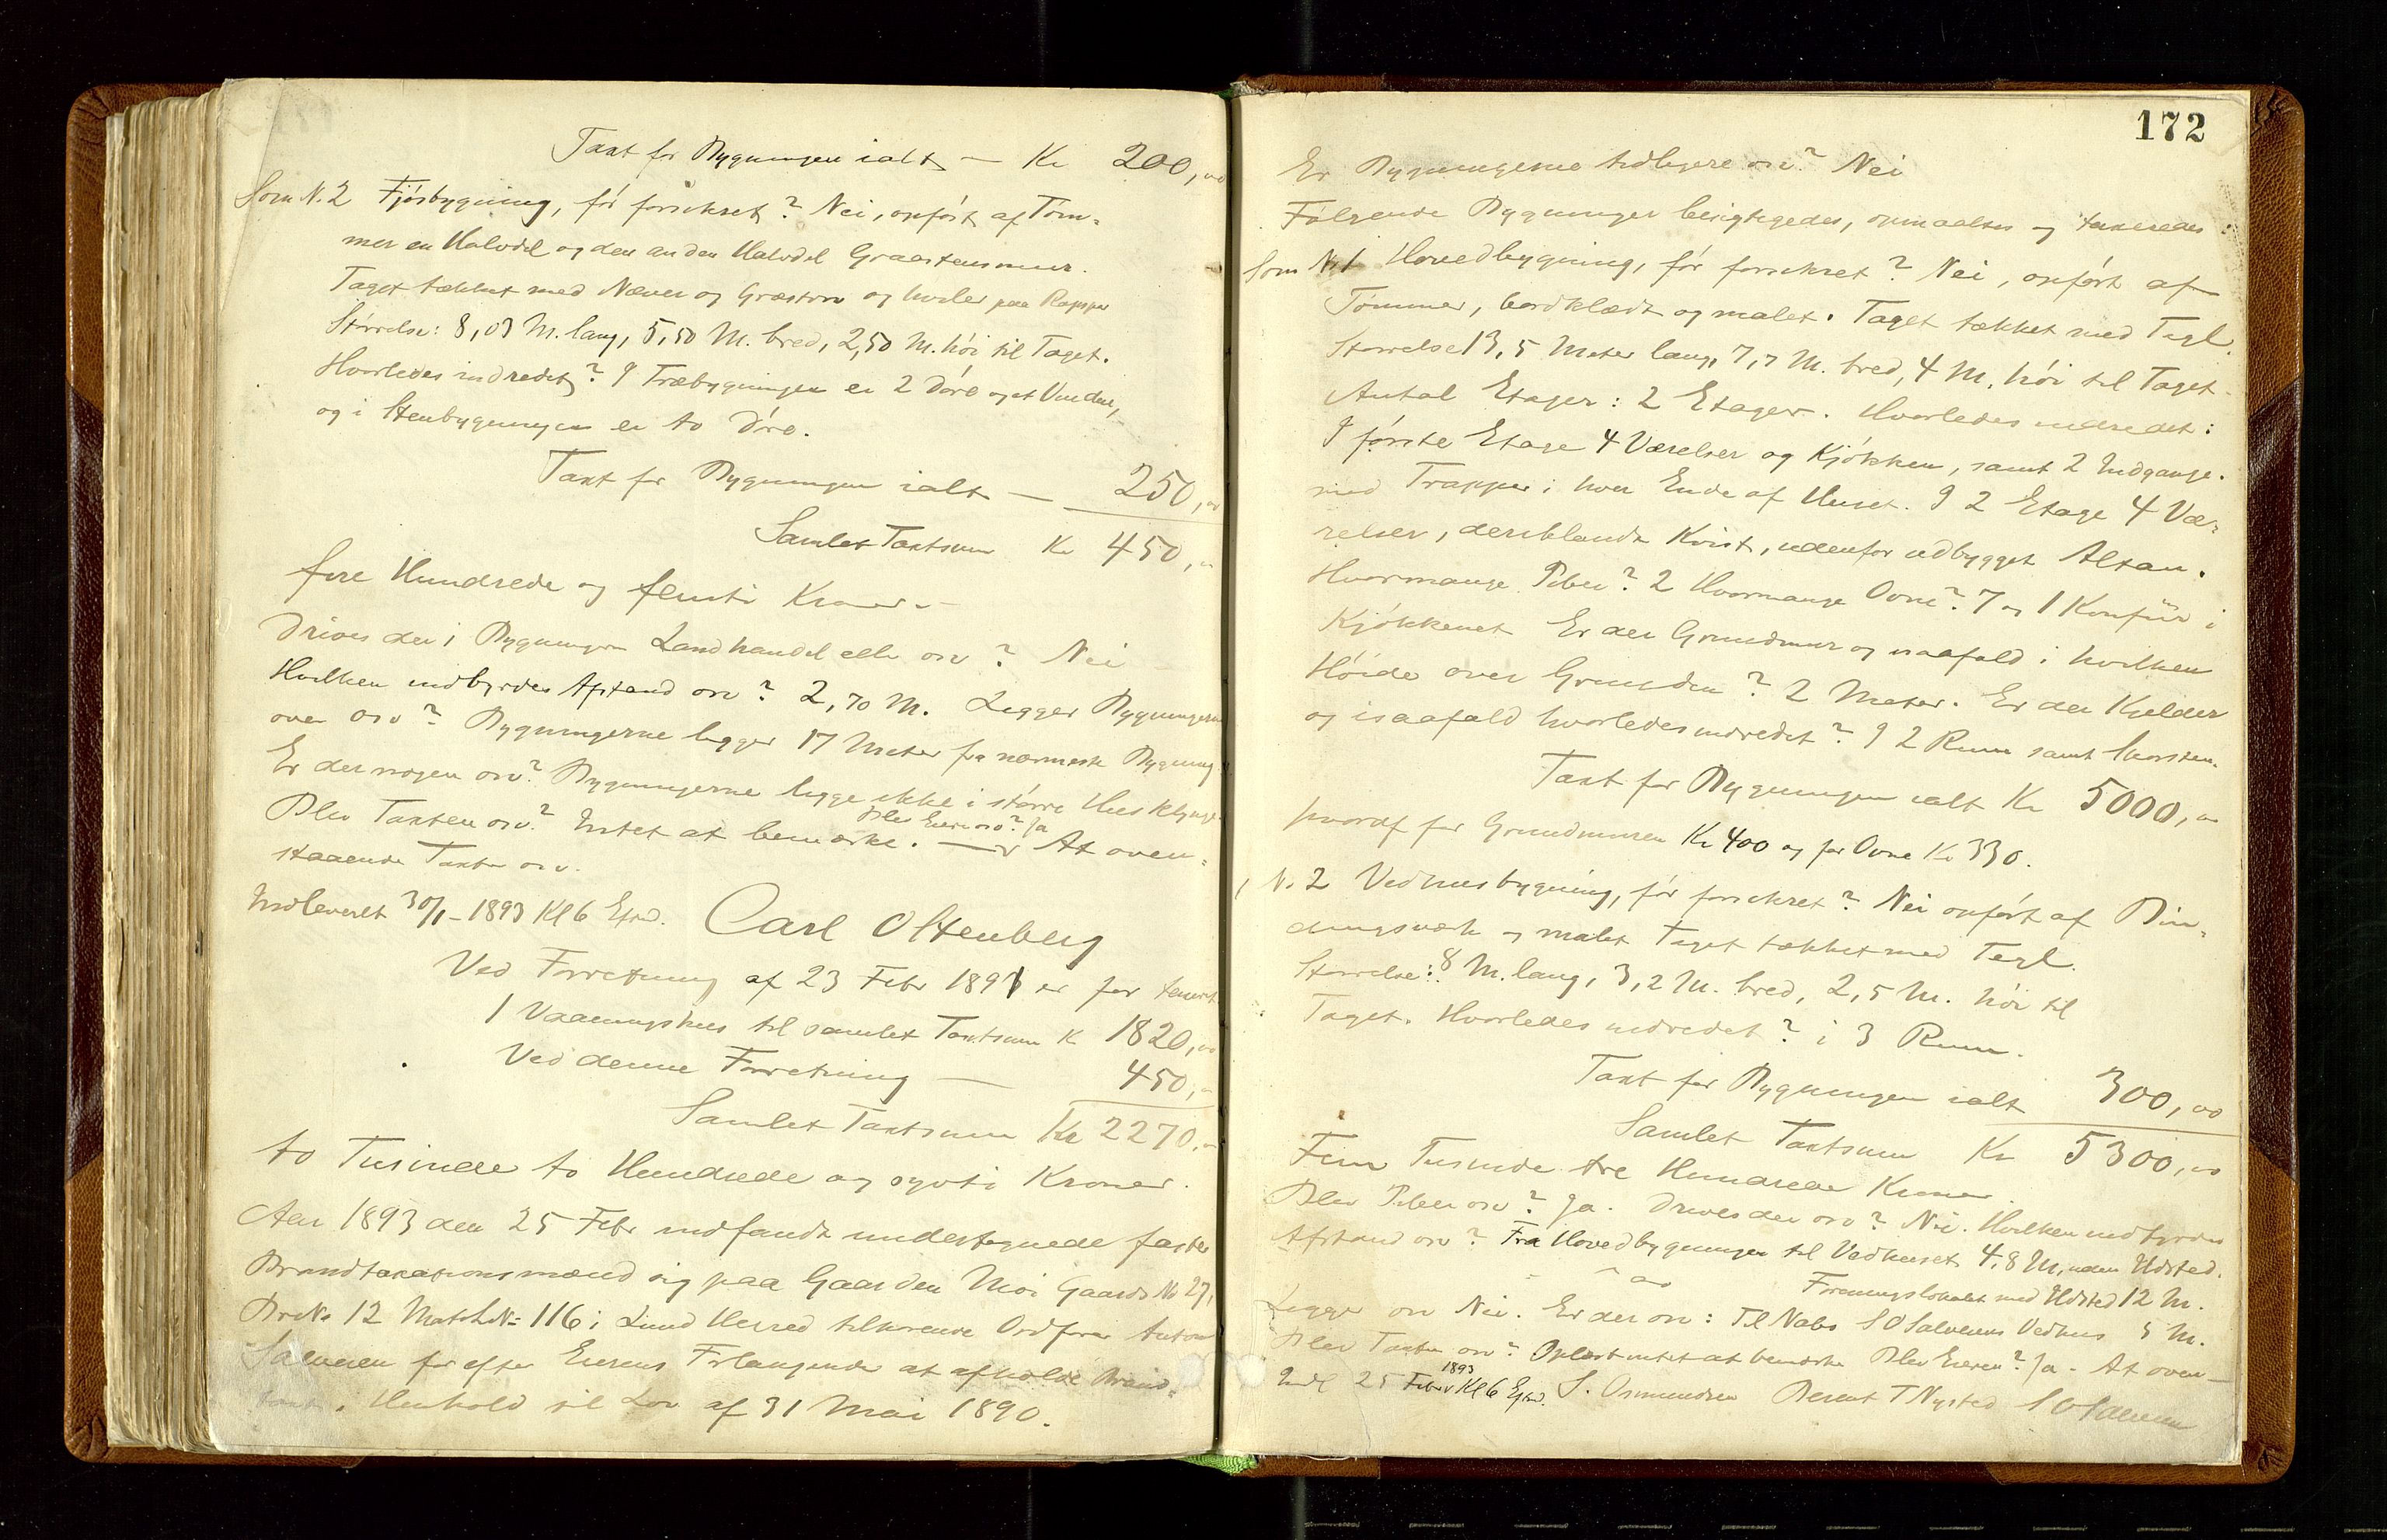 Taxt for Bygningen ialt — Kr 200,00
Som N. 2 Fjøsbygning, før forsikret? Nei, opført af Tøm-
mer en Halvdel og den anden Halvdel Graastensmur.
Taget tækket med Næver og Græstorv og hviler paa
Størrelse: 8,03 M. lang, 5,50 M. bred, 2,50 M. høi til Taget.
Hvorledes indredet? I Træbygningen er 2 Døre og et Vindu,
og i Stenbygningen er to Døre.
Taxt for Bygningen ialt — 250,00
Samlet Taxtsum Kr 450,00
fire Hundrede og femti Kroner.—
Drives der i Bygningen Landhandel eller osv? Nei
Hvilken indbyrdes Afstand osv? 2,70 M. Ligger Bygningerne
over osv? Bygningerne ligger 17 Meter fra nærmeste Bygning.
Er der nogen osv? Bygningerne ligge ikke i større Husklynge.
Blev Eieren osv? Ja
Blev Taxten osv? Intet at bemærke. — At oven-
staaende Taxt osv.
Indleveret 30/1-1893 Kl 6 Efmd. Carl Oftenberg
Ved Forretning af 23 Febr 1891 er før taxeret
1 Vaaningshus til samlet Taxtsum Kr 1820,00
Ved denne Forretning — 450,00
Samlet Taxtsum Kr 2270,00
to Tusinde to Hundrede og sytti Kroner.
Aar 1893 den 25 Febr indfandt undertegnede faste
Brandtaxationsmænd sig paa Gaarden Moi Gaards No 27,
Br No 12 Matr L No 116 i Lund Herred tilhørende Ordfører Anton
Salvesen for efter Eierens Forlangende at afholde Brand-
taxt i Henhold til Lov af 31 Mai 1890.
172
Er Bygningerne tidligere osv? Nei
Følgende Bygninger besigtigedes, opmaaltes og taxeredes:
Som No 1 Hovedbygning, før forsikret? Nei, opført af
Tømmer, bordklædt og malet. Taget tækket med Tegl.
Størrelse 13,5 Meter lang, 7,7 M. bred, 4 M. høi til Taget.
Antal Etager: 2 Etager. Hvorledes indredet:
I første Etage 4 Værelser og Kjøkken, samt 2 Indgange.
med Trapper i hver Ende af Huset. I 2 Etage 4 Væ-
relser, deriblandt Kvist, udenfor udbygget Altan.
Hvormange Piber? 2 Hvormange Ovne? 7 og 1 Komfür i
Kjøkkenet Er der Grundmur og isaafald i hvilken
Høide over Grunden? 2 Meter. Er der Kjelder
og isaafald hvorledes indredet? I 2 Rum samt Skorsten.
Taxt for Bygningen ialt Kr 5000,00
hvoraf for Grundmuren Kr 400 og for Ovne Kr 330.
N. 2 Vedhusbygning, før forsikret? Nei opført af Bin-
dingsværk og malet Taget tækket med Tegl.
Størrelse: 8 M. lang, 3,2 M. bred, 2,5 M. høi til
Taget. Hvorledes indredet? i 3 Rum.
Taxt for Bygningen ialt 300,00
Samlet Taxtsum Kr 5300,00
Fem Tusinde tre Hundrede Kroner.
Blev Piben osv? Ja. Drives der osv? Nei. Hvilken indbyrdes
Afstand osv? Fra Hovedbygningen til Vedhuset 4,8 M, uden Ildsted.
— " — do Foreningslokalet med Ildsted 12 M.
Ligger osv Nei. Er der osv: Til Nabo S O Salvesens Vedhus 5 M.
Blev Taxten osv? Oplæst intet at bemærke Blev Eieren? Ja. At oven—
Indl 25 Febr 1893 Kl 6 Efmd. S. Osmundsen Berent T Nysted S O Salvesen